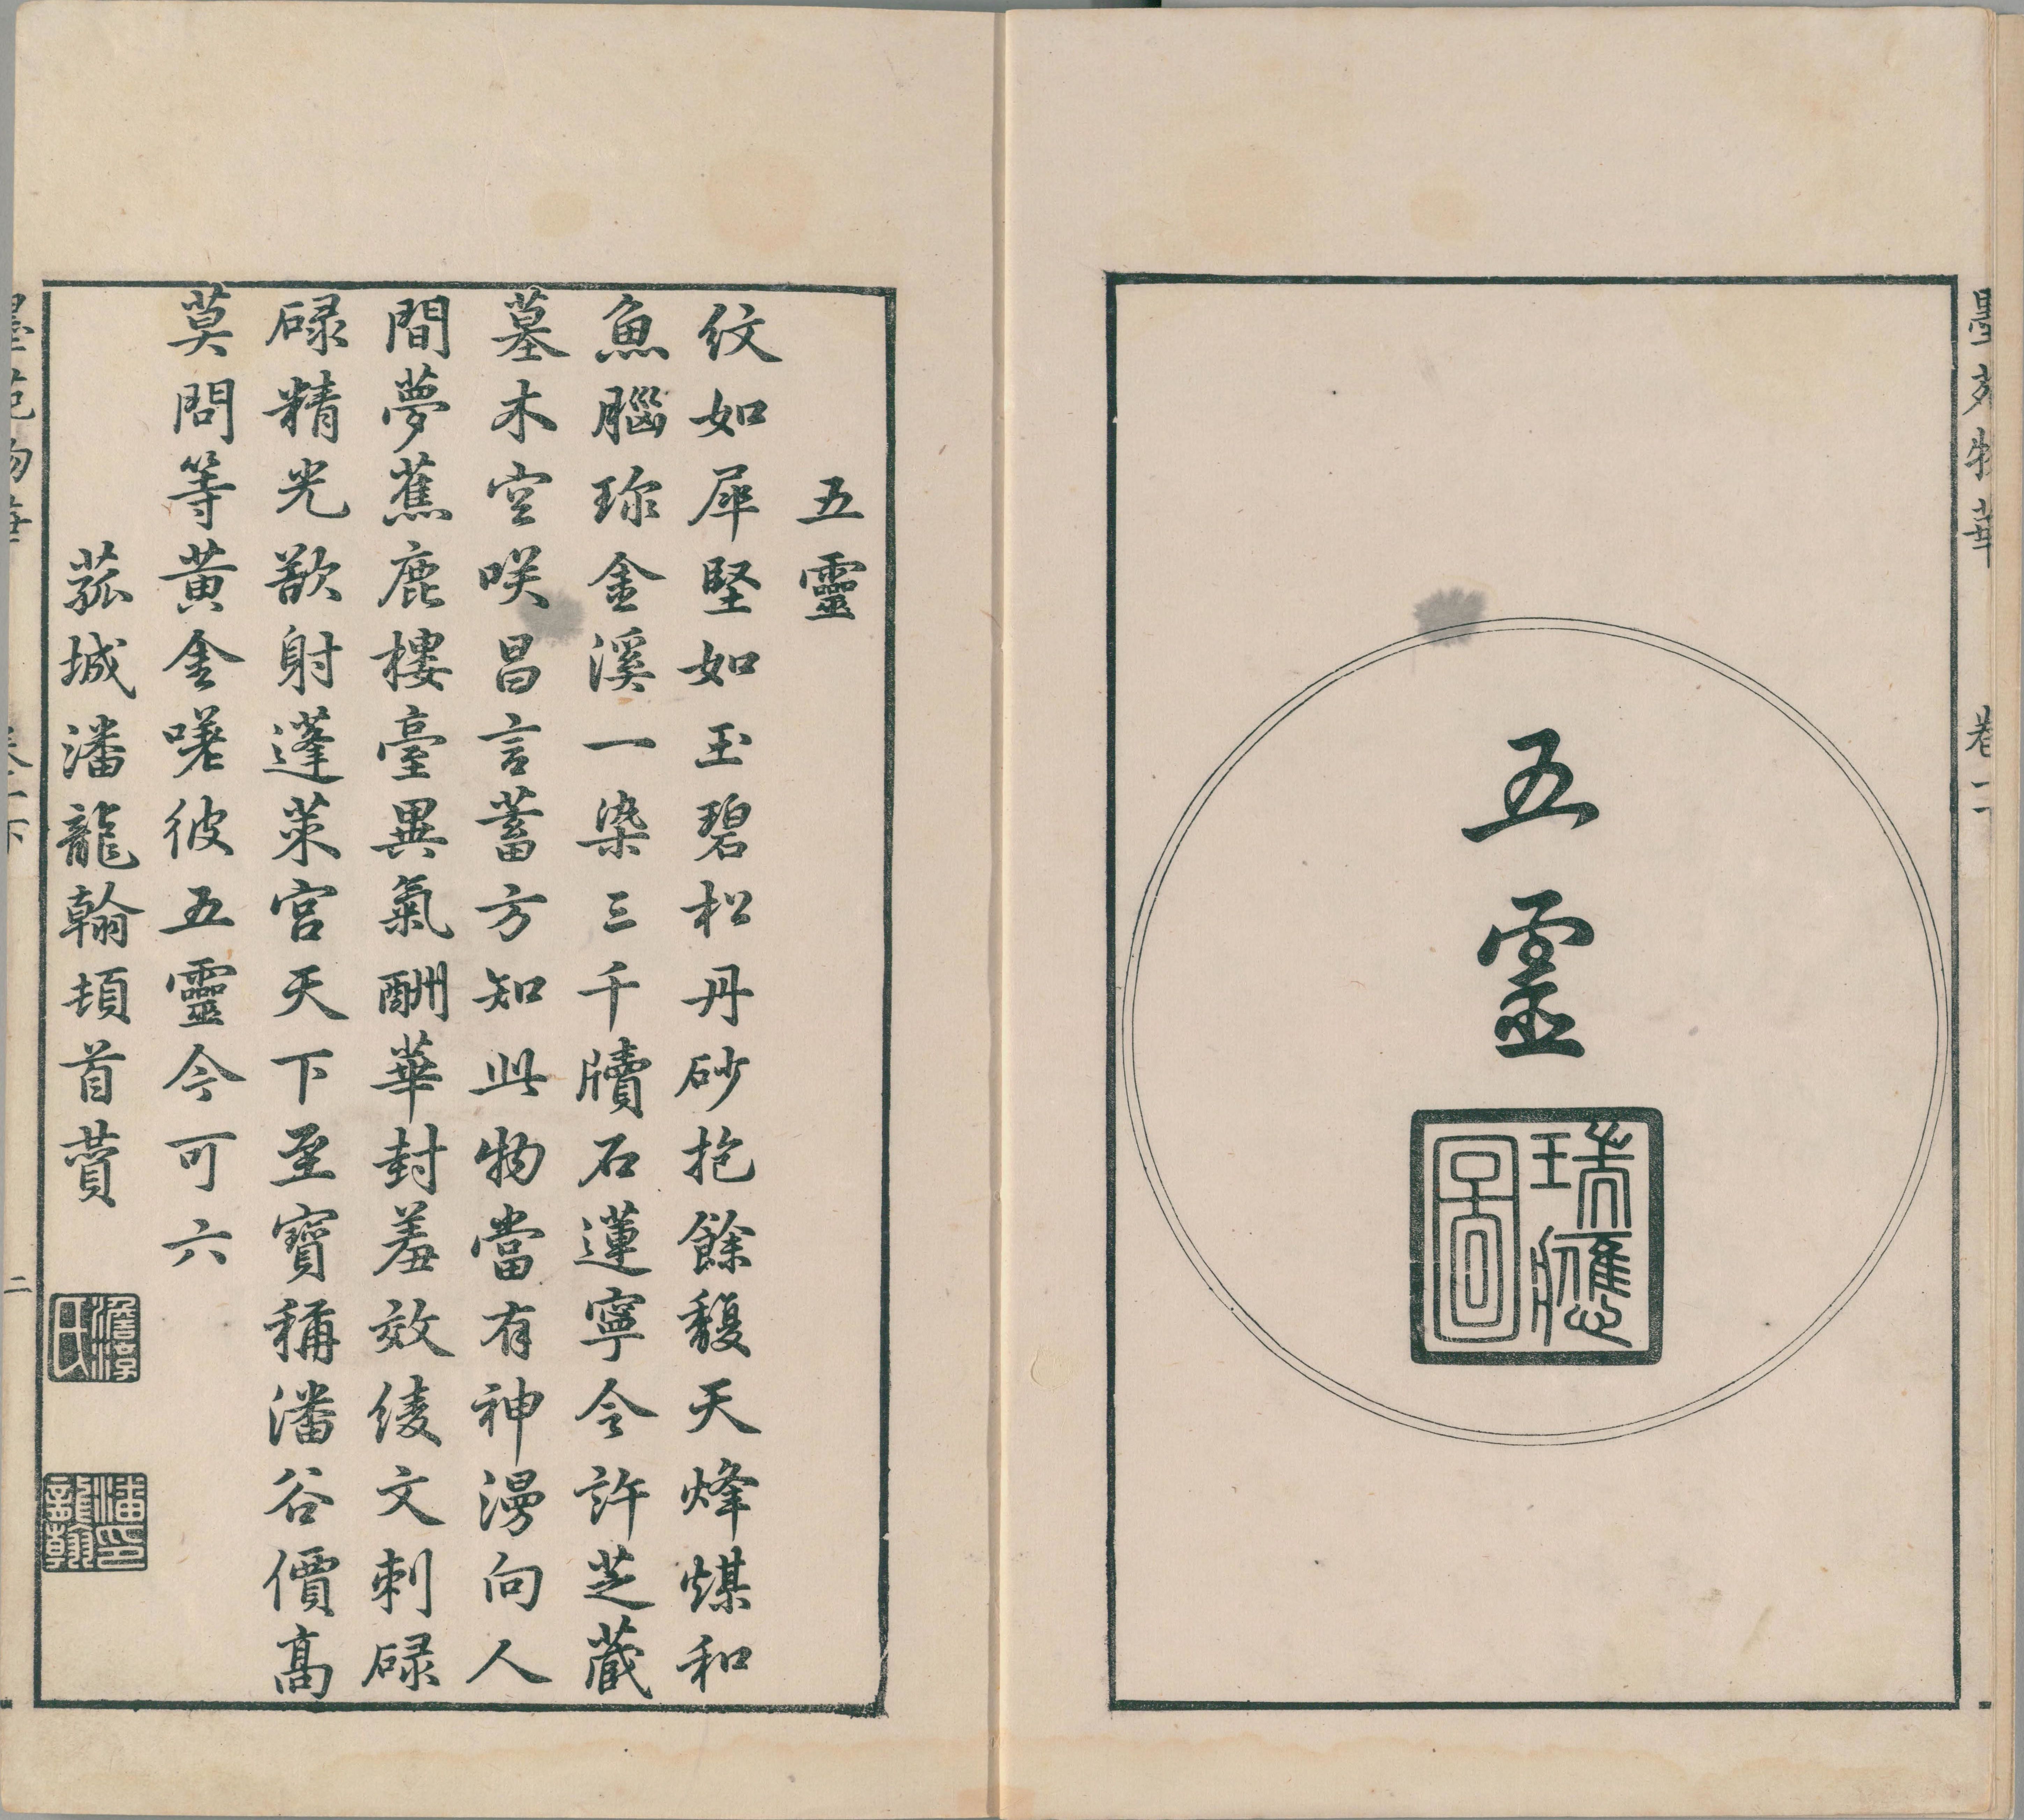 墨苑物華 卷一下
五靈
瑞應圖
五靈
紋如犀堅如玉碧松丹砂抱餘馥天烽煤和
魚腦珎金溪一染三千牘石蓮寧令許芝藏
墓木空咲昌言蓄方知此物當有神漫向人
間夢蕉鹿樓臺異氣酬華封羞效綾文刺碌
碌精光歘射蓬萊宮天下至寶稱潘谷價高
莫問等黃金嗟彼五靈今可六
菰城潘龍翰頓首贊
澹淳氏
潘龍翰印
墨苑物華 卷一下 二